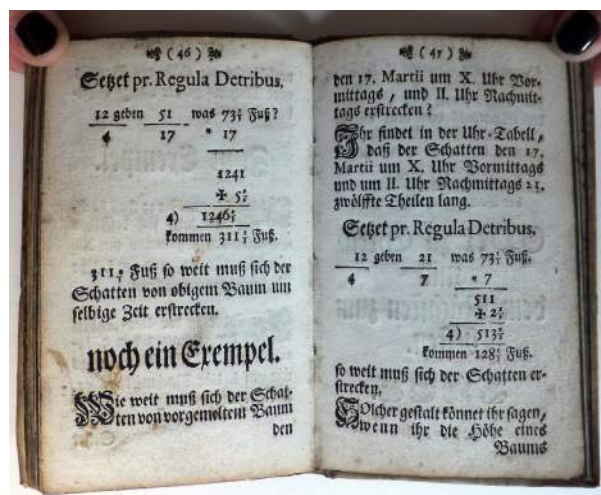 ( 46 )
Setzet pr. Regula Detribus.
12 geben 51 was 73 Fuß?
4 17 * 17
1241
✠ 5
4) 1246
kommen 311 Fuß.
311 Fuß so weit muß sich der
Schatten von obigem Baum um
selbige Zeit erstrecken.
noch ein Exempel.
Wie weit muß sich der Schat-
ten von vorgemeltem Baum
den
( 47 )
den 17. Martii um X. Uhr Vor-
mittags, und II. Uhr Nachmit-
tags erstrecken?
Ihr findet in der Uhr-Tabell,
daß der Schatten den 17.
Martii um X. Uhr Vormittags
und um II. Uhr Nachmittags 21.
zwölffte Theilen lang.
Setzet pr. Regula Detribus.
12 geben 21 was 73 Fuß.
4 7 * 7
511
✠ 2
4) 513
kommen 128 Fuß.
so weit muß sich der Schatten er-
strecken.
SOlcher gestalt könnet ihr sagen,
wenn ihr die Höhe eines
Baums